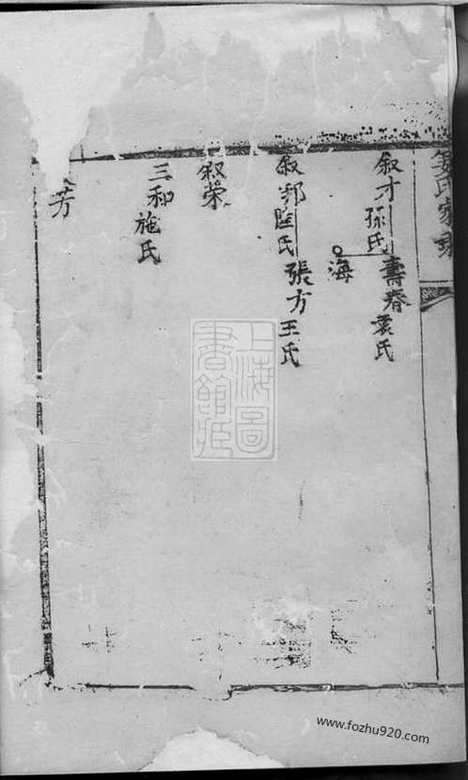 氏家
叙才孫氏
壽春袁氏
海
叙邦
氏
張方王氏
叙榮
三和施氏
芳
上海圖書館藏
www.fozhu920.com